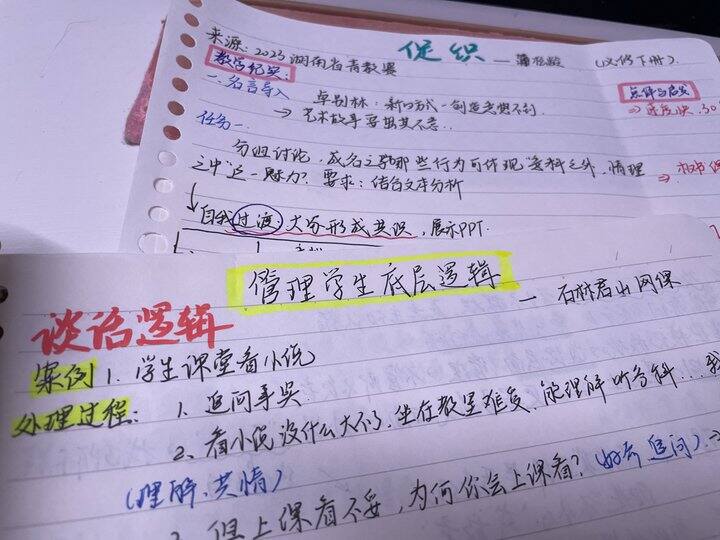 促织 — 蒲松龄 (必修下册)
来源：2023湖南省青教赛
教学纪实：
点评与启发
一、名言导入
卓别林：新 一 创造 想不到
⇒ 进度快, 30
→ 艺术故事要出其不意..
任务一
分组讨论，成名之 哪些行为可体现"意料之外，情理
之中"这一魅力？要求：结合文本分析
↓自我过渡 大家形成共识，展示PPT.
管理学生底层逻辑
— 石林君山网课
谈话逻辑
案例1. 学生课堂看小说
处理过程： 1. 追问事实
2. 看小说没什么大不了，坐在教室难受，能理解听 科...我
(理解、共情)
但上课看不妥，为何你会上课看？(好奇 追问)